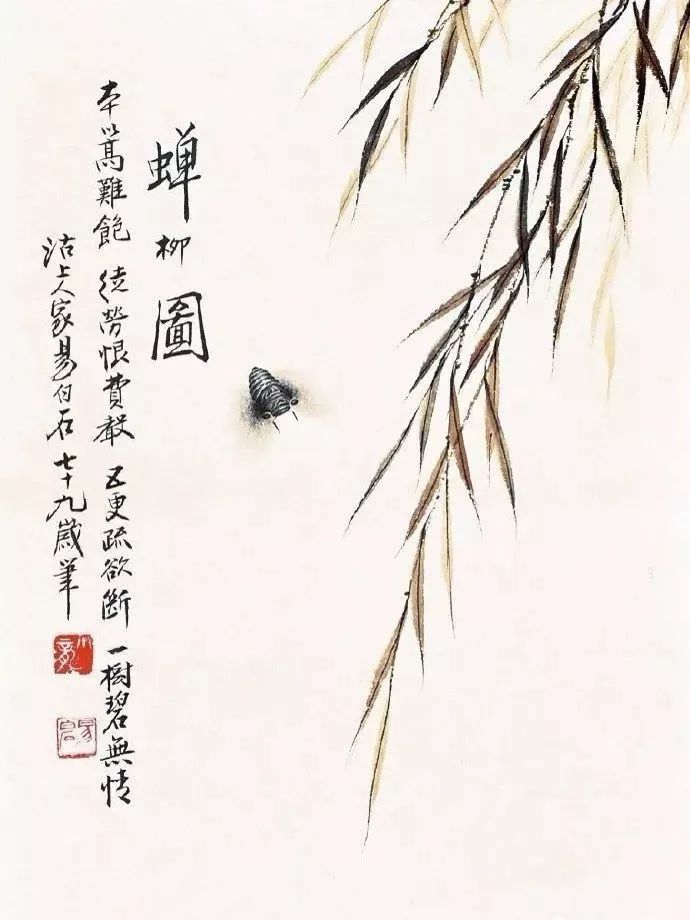 蟬柳圖
本以高難飽 徒勞恨費聲 五更疏欲斷 一樹碧無情
沽上人家易伯石七十九歲筆